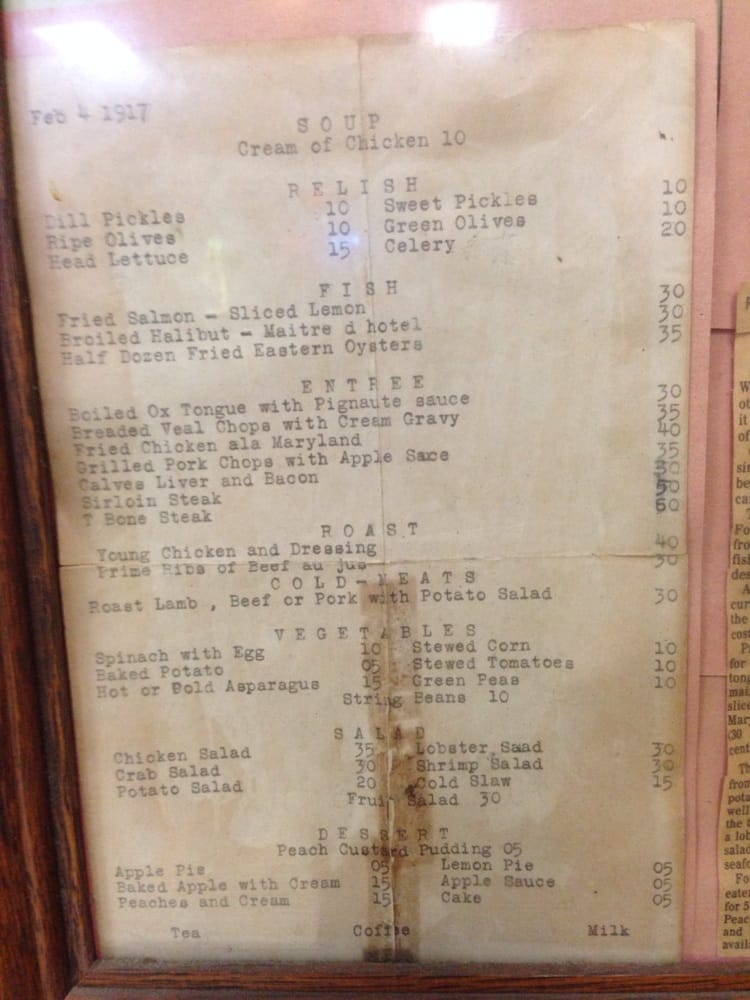 Feb 4 1917
S O U P
Cream of Chicken 10
R E L I S H
Dill Pickles 10 Sweet Pickles 10
Ripe Olives 10 Green Olives 10
Head Lettuce 15 Celery 20
F I S H
Fried Salmon - Sliced Lemon 30
Broiled Halibut - Maitre d hotel 30
Half Dozen Fried Eastern Oysters 35
E N T R E E
Boiled Ox Tongue with Pignaute sauce 30
Breaded Veal Chops with Cream Gravy 35
Fried Chicken ala Maryland 40
Grilled Pork Chops with Apple Sauce 35
Calves Liver and Bacon 30
Sirloin Steak 50
T Bone Steak 60
R O A S T
Young Chicken and Dressing 40
Prime Ribs of Beef au jus 30
C O L D - M E A T S
Roast Lamb , Beef or Pork with Potato Salad 30
V E G E T A B L E S
Spinach with Egg 10 Stewed Corn 10
Baked Potato 05 Stewed Tomatoes 10
Hot or Bold Asparagus 15 Green Peas 10
String Beans 10
S A L A D
Chicken Salad 35 Lobster Saad 30
Crab Salad 30 Shrimp Salad 30
Potato Salad 20 Cold Slaw 15
Fruit Salad 30
D E S S E R T
Peach Custard Pudding 05
Apple Pie 05 Lemon Pie 05
Baked Apple with Cream 15 Apple Sauce 05
Peaches and Cream 15 Cake 05
Tea Coffee Milk